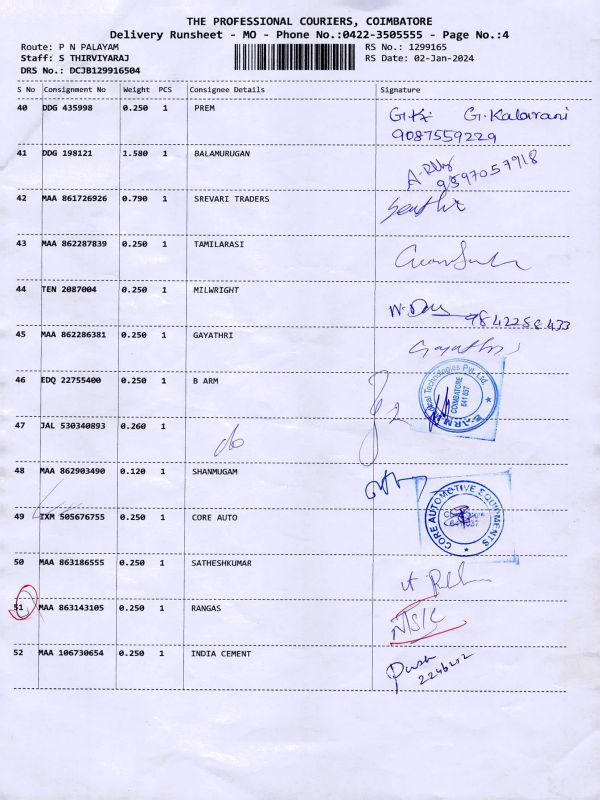 THE PROFESSIONAL COURIERS, COIMBATORE
Delivery Runsheet - MO - Phone No.:0422-3505555 - Page No.:4
Route: P N PALAYAM RS No.: 1299165
Staff: S THIRVIYARAJ RS Date: 02-Jan-2024
DRS No.: DCJB129916504
S No Consignment No Weight PCS Consignee Details Signature
40 DDG 435998 0.250 1 PREM G. Kalavani
9087559229
41 DDG 198121 1.580 1 BALAMURUGAN
9597057918
42 MAA 861726926 0.790 1 SREVARI TRADERS
43 MAA 862287839 0.250 1 TAMILARASI
44 TEN 2087004 0.250 1 MILWRIGHT
45 MAA 862286381 0.250 1 GAYATHRI Gayathri
46 EDQ 22755400 0.250 1 B ARM
Technologies Pvt. Ltd.
COIMBATORE
641 037
47 JAL 530340893 0.260 1
do
48 MAA 862903490 0.120 1 SHANMUGAM
49 IXM 505676755 0.250 1 CORE AUTO
CORE AUTOMOTIVE EQUIPMENTS
641 037
50 MAA 863186555 0.250 1 SATHESHKUMAR
51 MAA 863143105 0.250 1 RANGAS
52 MAA 106730654 0.250 1 INDIA CEMENT
2246202